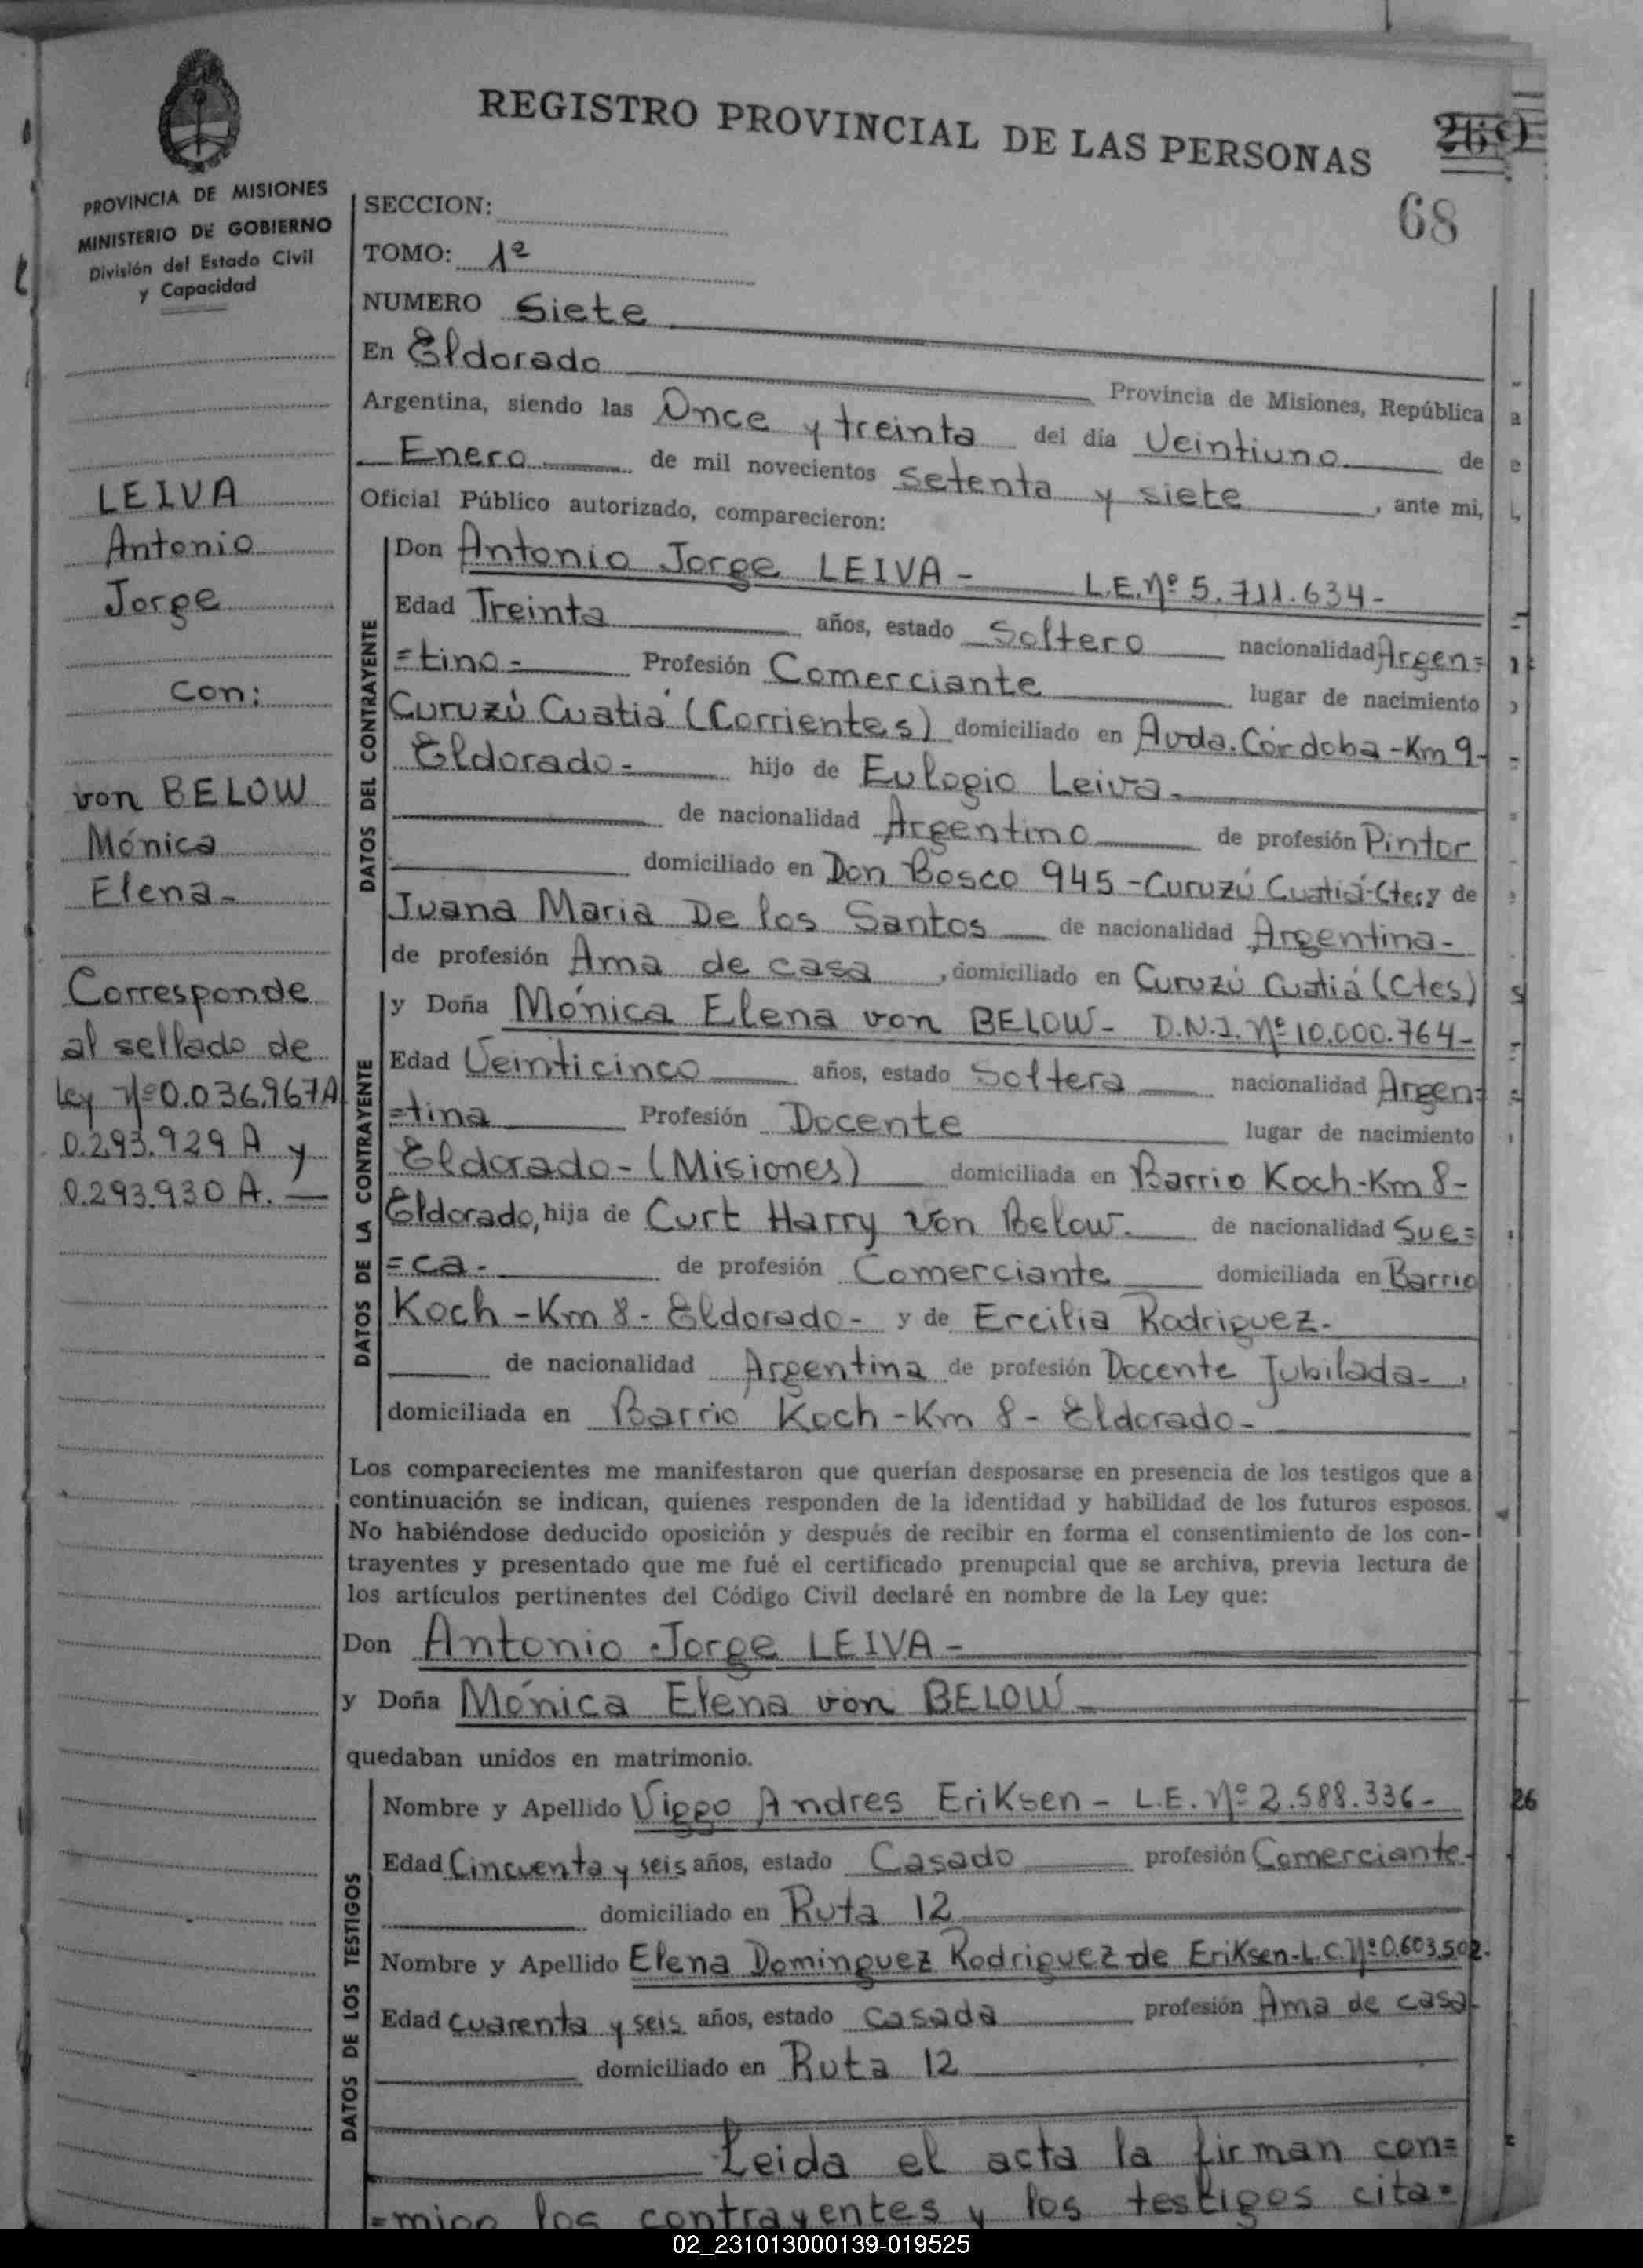 REGISTRO PROVINCIAL DE LAS PERSONAS
68
PROVINCIA DE MISIONES
MINISTERIO DE GOBIERNO
División del Estado Civil
y Capacidad
LEIVA
Antonio
Jorge
con:
von BELOW
Mónica
Elena-
Corresponde
al sellado de
Ley Nº 0.036.967A
0.293.929 A y
0.293.930 A.
SECCION:
TOMO: 1º
NUMERO Siete
En Eldorado Provincia de Misiones, República
Argentina, siendo las Once y treinta del día Veintiuno de
Enero de mil novecientos setenta y siete, ante mi,
Oficial Público autorizado, comparecieron:
DATOS DEL CONTRAYENTE
Don Antonio Jorge LEIVA - L.E.Nº 5.711.634-
Edad Treinta años, estado Soltero nacionalidad Argen=
=tino- Profesión Comerciante lugar de nacimiento
Curuzú Cuatiá (Corrientes) domiciliado en Avda. Córdoba-Km 9-
Eldorado- hijo de Eulogio Leiva-
de nacionalidad Argentino de profesión Pintor
domiciliado en Don Bosco 945-Curuzú Cuatiá-Ctes y de
Juana Maria De los Santos de nacionalidad Argentina-
de profesión Ama de casa, domiciliado en Curuzú Cuatiá (Ctes)
DATOS DE LA CONTRAYENTE
y Doña Mónica Elena von BELOW- D.N.I. Nº 10.000.764-
Edad Veinticinco años, estado Soltera nacionalidad Argen=
=tina Profesión Docente lugar de nacimiento
Eldorado-(Misiones) domiciliada en Barrio Koch-Km 8-
Eldorado, hija de Curt Harry von Below- de nacionalidad Sue=
=ca- de profesión Comerciante domiciliada en Barrio
Koch-Km 8- Eldorado- y de Ercilia Rodriguez-
de nacionalidad Argentina de profesión Docente Jubilada-,
domiciliada en Barrio Koch-Km 8- Eldorado-
Los comparecientes me manifestaron que querían desposarse en presencia de los testigos que a
continuación se indican, quienes responden de la identidad y habilidad de los futuros esposos.
No habiéndose deducido oposición y después de recibir en forma el consentimiento de los con-
trayentes y presentado que me fué el certificado prenupcial que se archiva, previa lectura de
los artículos pertinentes del Código Civil declaré en nombre de la Ley que:
Don Antonio Jorge LEIVA-
y Doña Mónica Elena von BELOW-
quedaban unidos en matrimonio.
DATOS DE LOS TESTIGOS
Nombre y Apellido Viggo Andres Eriksen- L.E. Nº 2.588.336-
Edad Cincuenta y seis años, estado Casado profesión Comerciante-
domiciliado en Ruta 12
Nombre y Apellido Elena Dominguez Rodriguez de Eriksen-L.C. Nº 0.603.502-
Edad cuarenta y seis años, estado casada profesión Ama de casa-
domiciliado en Ruta 12
Leida el acta la firman con=
=migo los contrayentes y los testigos cita=
26
02_231013000139-019525